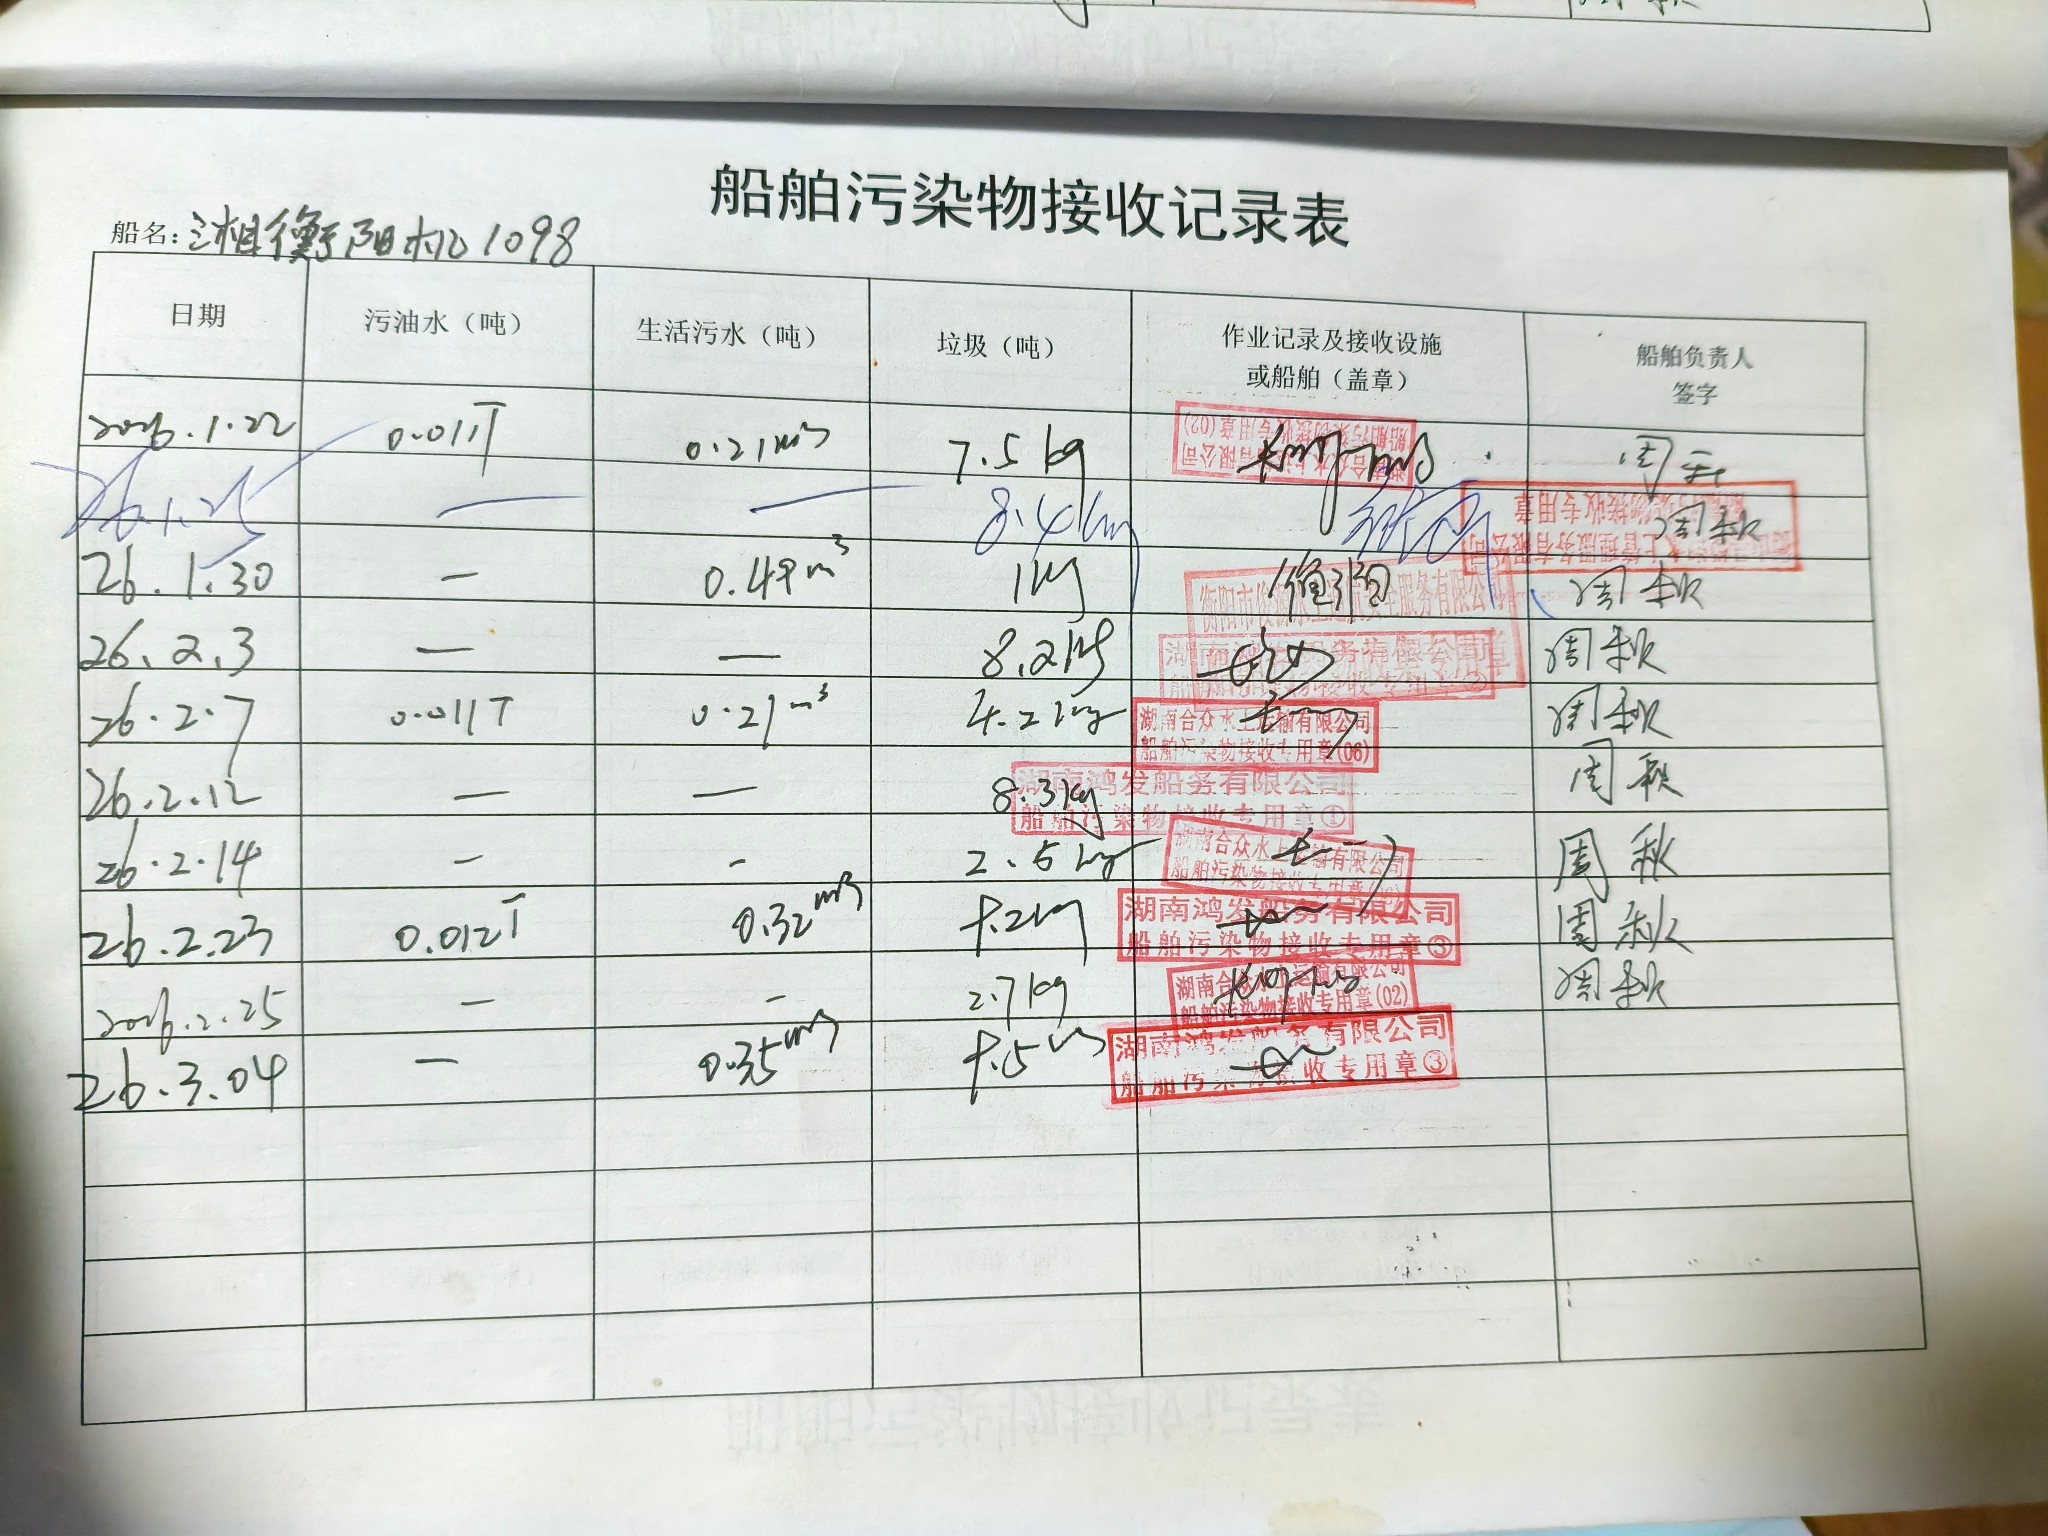 船舶污染物接收记录表
船名：湘衡阳机1098
日期 污油水（吨） 生活污水（吨） 垃圾（吨） 作业记录及接收设施或船舶（盖章） 船舶负责人签字
2026.1.22 0.011T 0.21m³ 7.5kg 船舶污染物接收专用章(02) 周秋
26.1.25 — — 8.4kg 周秋
26.1.30 — 0.49m³ 1kg 周秋
26.2.3 — — 8.2kg 周秋
26.2.7 0.011T 0.21m³ 4.2kg 湖南合众水上运输有限公司 船舶污染物接收专用章(06) 周秋
26.2.12 — — 8.3kg 湖南鸿发船务有限公司 船舶污染物接收专用章① 周秋
26.2.14 — - 2.5kg 湖南合众水上运输有限公司 船舶污染物接收专用章 周秋
26.2.23 0.012T 0.32m³ 湖南鸿发船务有限公司 船舶污染物接收专用章③ 周秋
2026.2.25 — - 2.7kg 湖南合众水上运输有限公司 船舶污染物接收专用章(02) 周秋
26.3.04 — 0.35m³ 湖南鸿发船务有限公司 船舶污染物接收专用章③